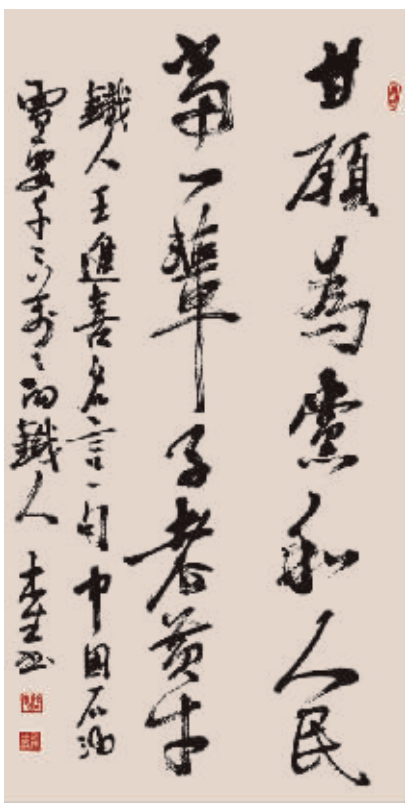 甘願為黨和人民
當一輩子老黄牛
鐵人王進喜名言一句中国石油
需要千千萬萬的鐵人 木生书